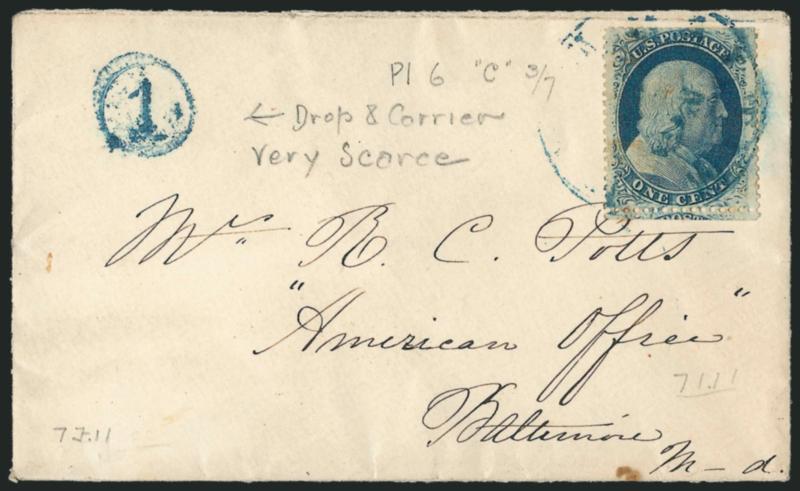 1
Pl 6 "C" 3/7
← Drop & Carrier
Very Scarce
U.S. POSTAGE
ONE CENT
Mr R. C. Potts
"American Office"
Baltimore
M-d.
71.11